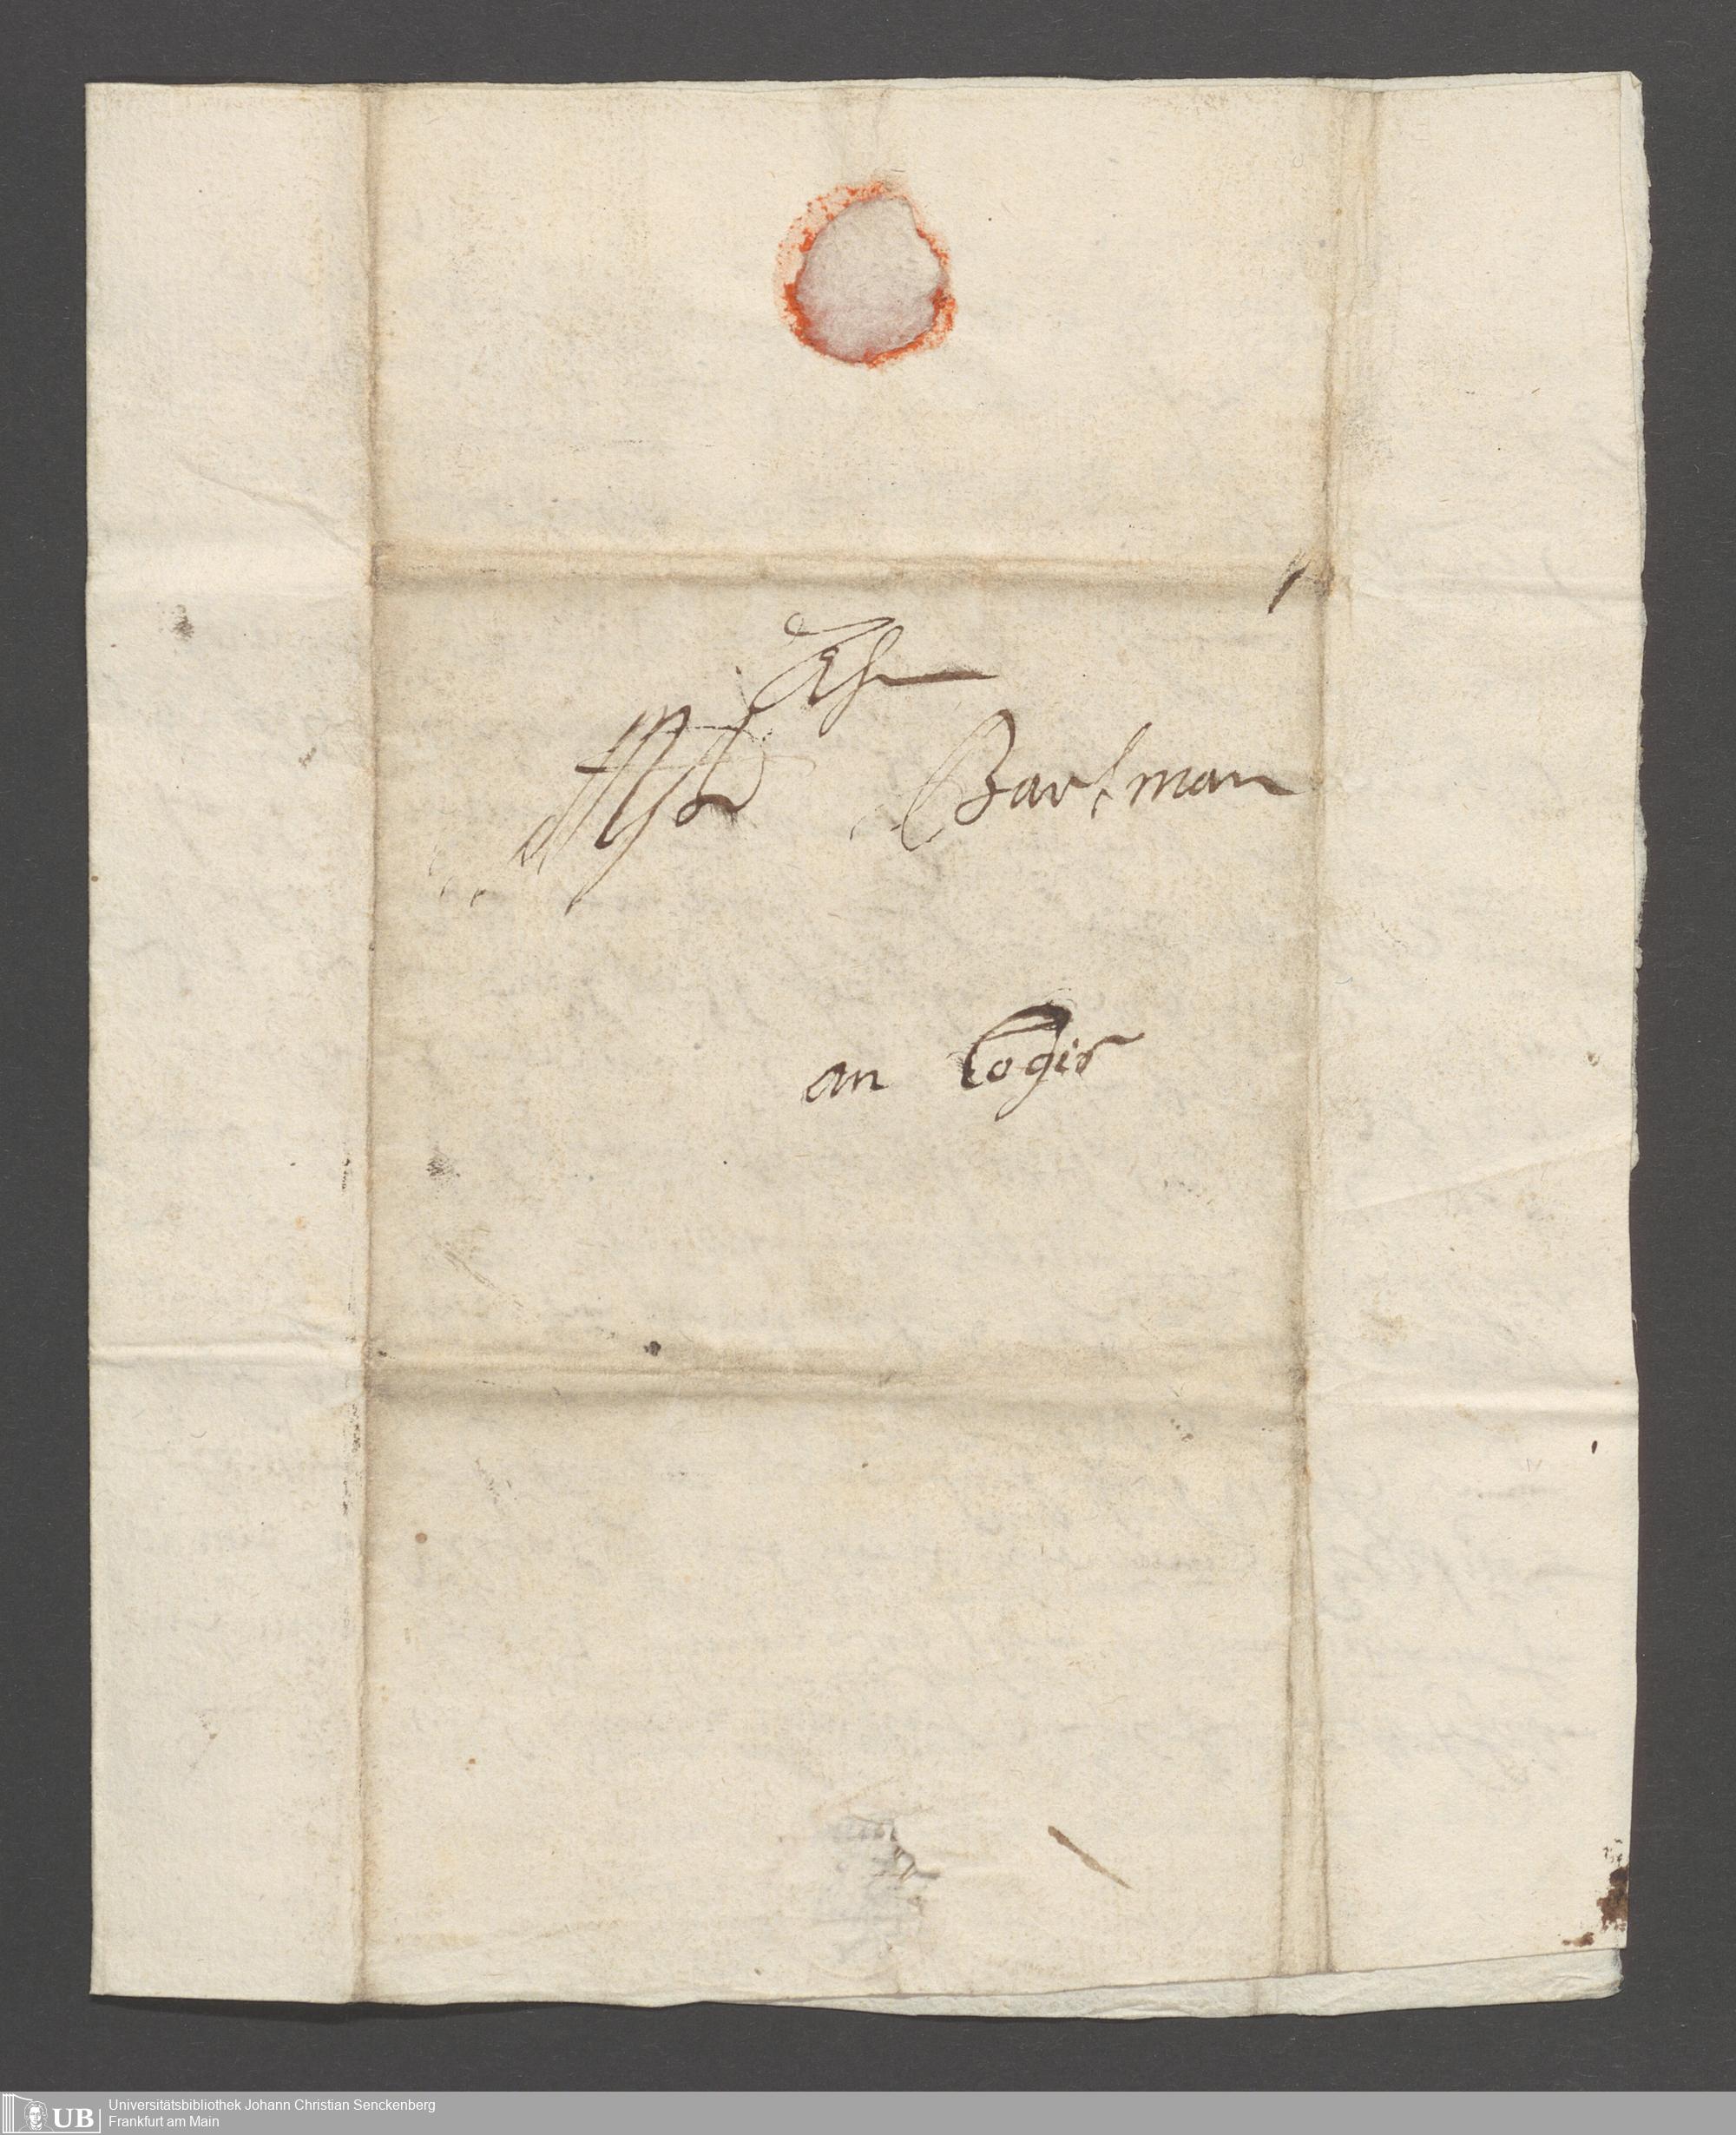 Barsman
an Logis
UB
Universitätsbibliothek Johann Christian Senckenberg
Frankfurt am Main